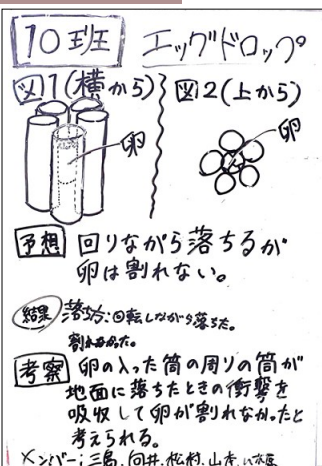 10班 エッグドロップ
図1(横から) 図2(上から)
卵 卵
予想 回りながら落ちるが
卵は割れない。
結果 落ち方:回転しながら落ちた。
割れなかった。
考察 卵の入った筒の周りの筒が
地面に落ちたときの衝撃を
吸収して卵が割れなかったと
考えられる。
メンバー:三島、向井、松村、山本、